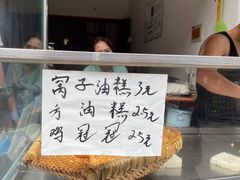 窝子油糕3元
方油糕2.5元
鸡冠冠2.5元